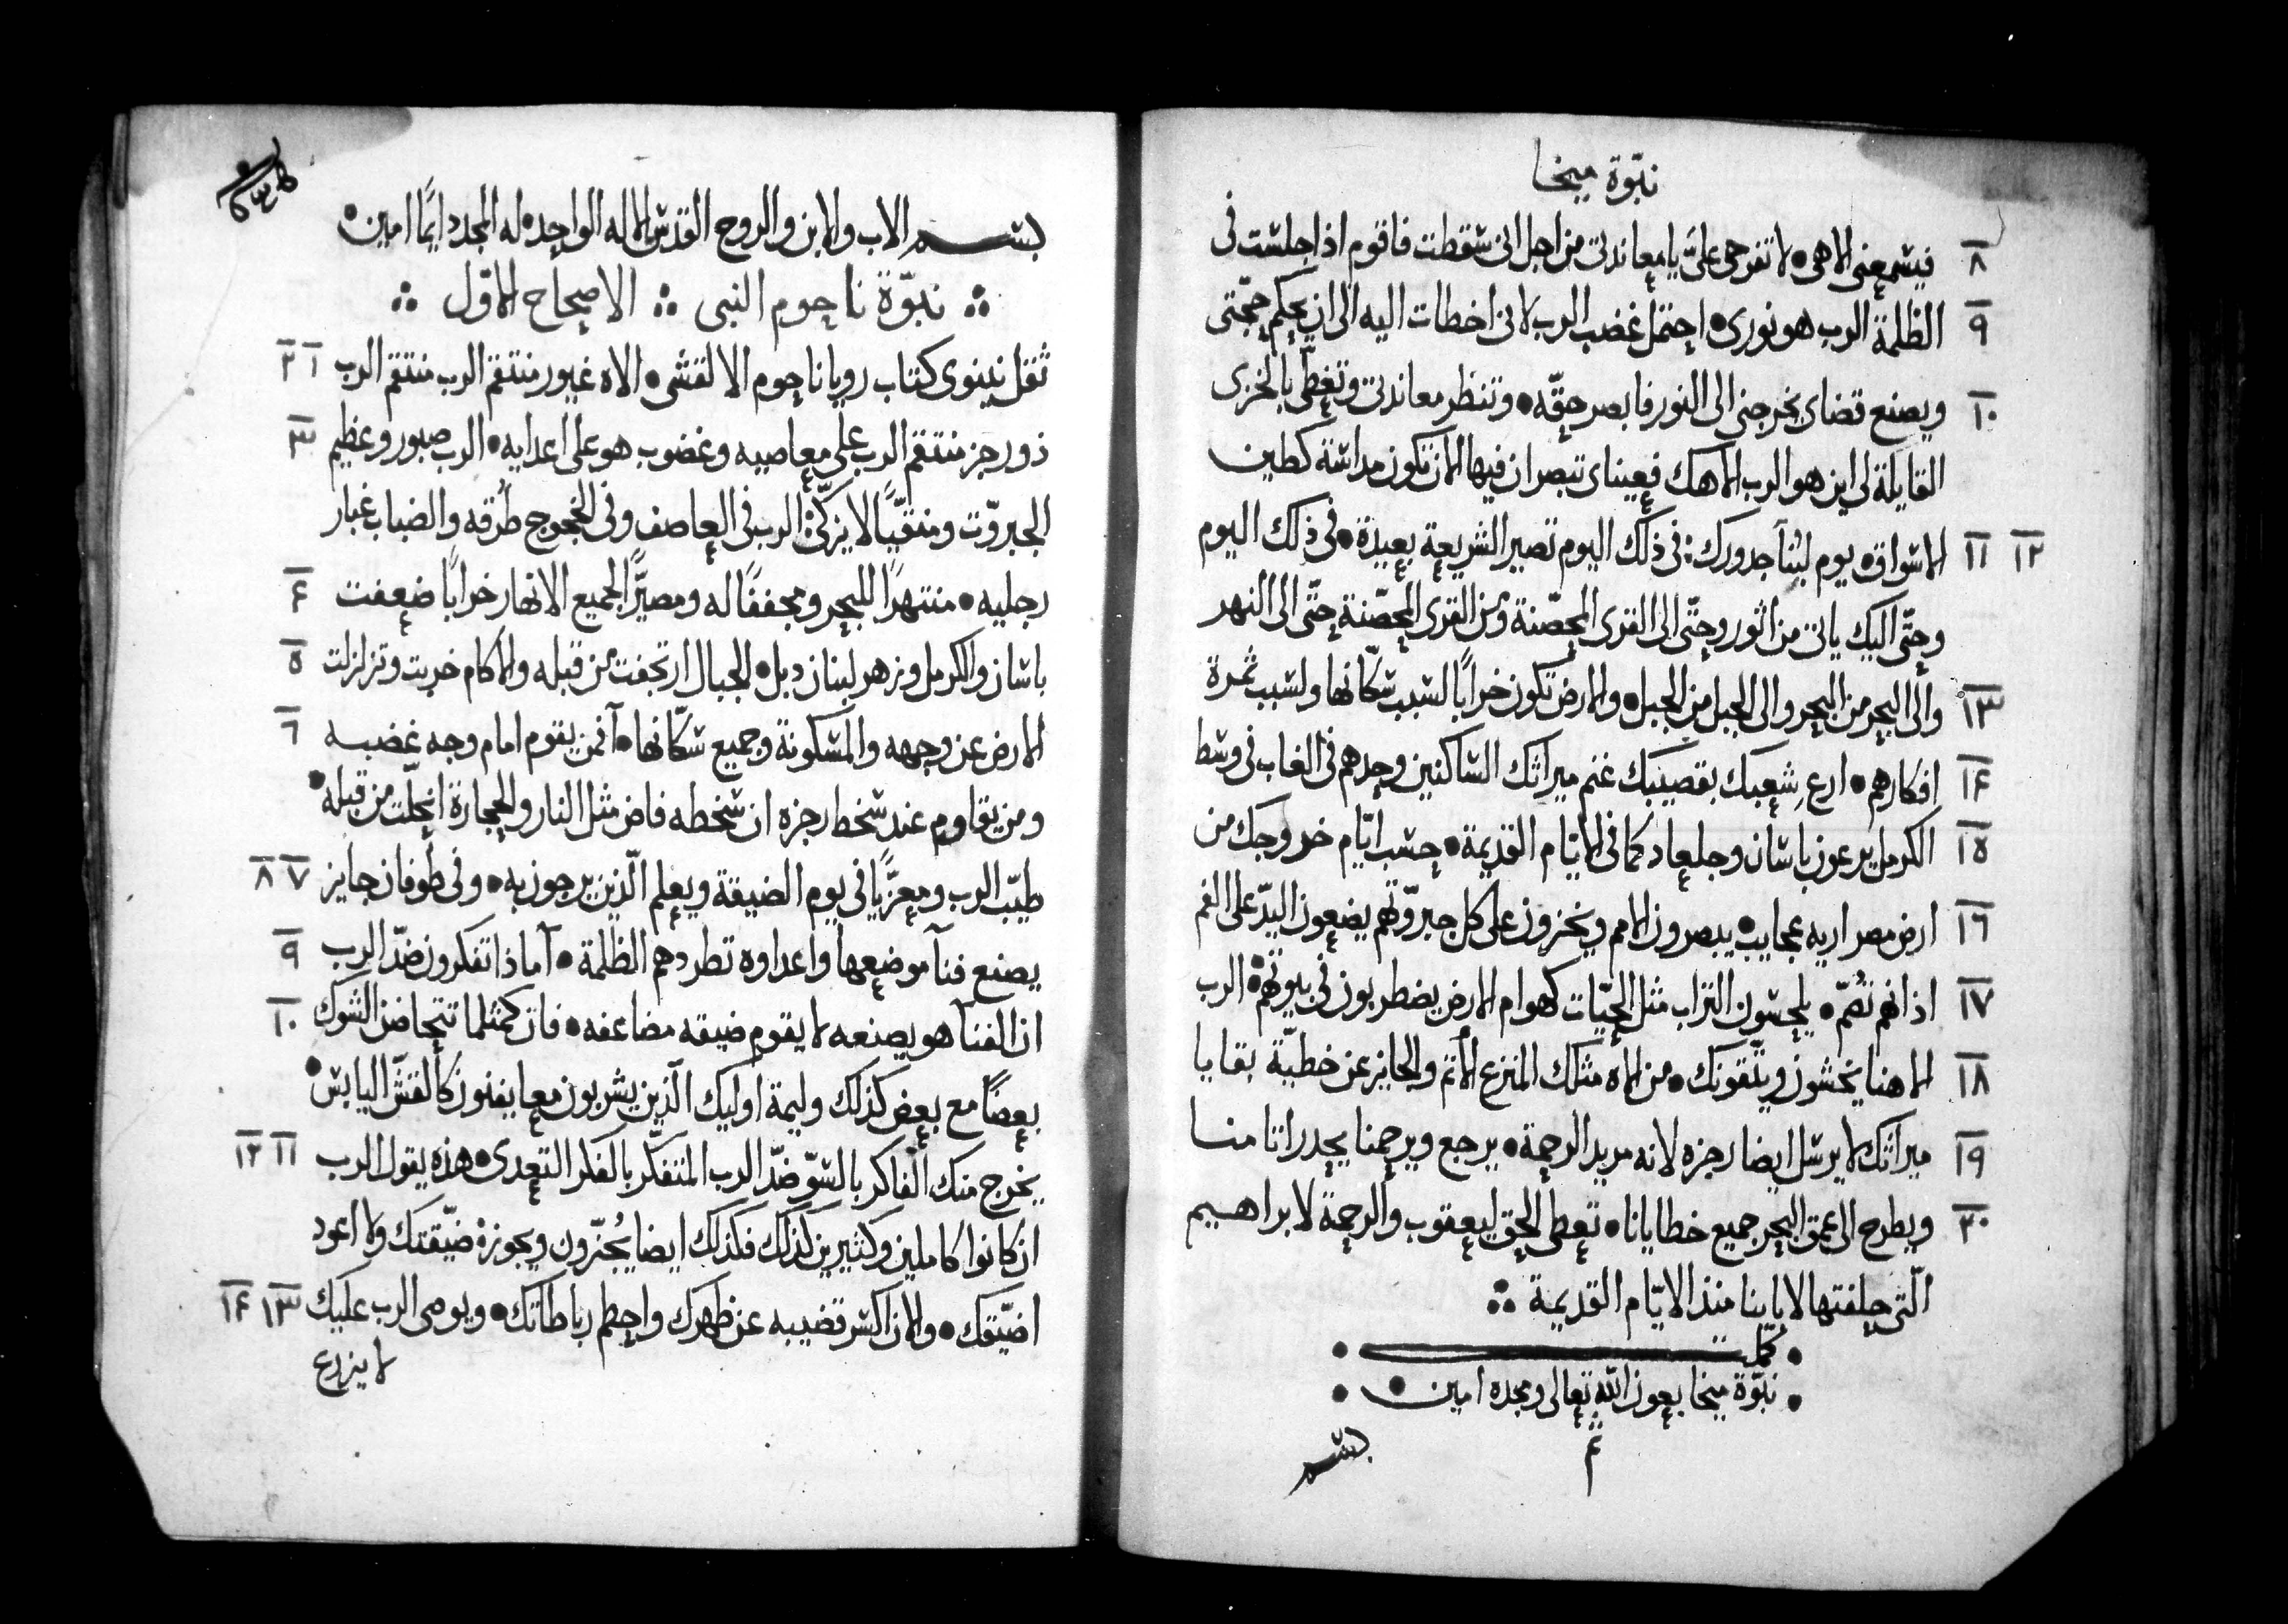 نبوّة ميخا
٨ فيسمعنى الاهى • لا تفرحى علىَّ يا معاندتى من اجل انى سقطت فاقوم اذا جلست فى
٩ الظلمة الرب هو نورى • احتمل غضب الرب لانى اخطات اليه الى ان يحكم حجّتى
١٠ ويصنع قضاى يخرجنى الى النور فابصر حقّه • وتنظر معاندتى وتغطّى بالخزى
القايلة لى اين هو الرب الاهك فعيناى تبصران فيها الان تكون مداسة كطين
١١ ١٢ الاسواق • يوم لبُنآ جدورك : فى ذلك اليوم تصير الشريعة بعيدة • فى ذلك اليوم
وحتّى اليك ياتى من اثور وحتّى الى القرى المحصّنة ومن القرى المحصّنة حتّى الى النهر
١٣ والى البحر من البحر والى الجبل من الجبل • والارض تكون خرابًا لسبب سكّانها ولسبب ثمرة
١٤ افكارهم • ارعِ شعبك بقصيبك غنم ميراثك الساكنين وحدهم فى الغاب فى وسط
١٥ الكرمل يرعون باشان وجلعاد كما فى الايّام القديمة • حسب ايّام خروجك من
١٦ ارض مصر اريه عجايب • يبصرون الامم ويخزون على كل جبروّتهم يضعون اليدّ على الفم
١٧ اذانهم تُصمّ • يلحسون التراب مثل الحيّات كهوام الارض يضطربون فى بيوتهم • الرب
١٨ الاهنا يخشون ويتّقونك • من الاه مثلك المنزع الأثم والجايز عن خطيّة بقايا
١٩ ميراثك لا يرسل ايضا رجزه لانه مريد الرحمة • يرجع ويرحمنا يحدر اثامنا
٢٠ ويطرح الى عمق البحر جميع خطايانا • تعطى الحق ليعقوب والرحمة لابراهيم
الّتى حلفتها لاباينا منذ الايّام القديمة
كملّت
نبوّة ميخا بعون الله تعالى ومجده امين
تم
بسم
بسم الاب والابن والروح القدس الاله الواحد • له المجد دايمًا امين •
نبوّة ناحوم النبى الاصحاح الاوّل
١ ٢ ثقل نينوى كتاب رويا ناحوم الالقشى • الاه غيور منتقم الرب منتقم الرب
٣ ذو رجز منتقم الرب على معاصيه وغضوب هو على اعدايه • الرب صبور وعظيم
الجبروّت ومنقيًّا لا يزكّى : الرب فى العاصف وفى الججوج طُرقه والضباب غبار
٤ رجليه • منتهرًا للبحر ومجففًا له ومصيرًّا لجميع الانهار خرابًا ضعفت
٥ باشان والكرمل وزهر لبنان دبل • الجبال ارتجفت من قبله والاكام خربت وتزلزلت
٦ الارض عن وجهه والمسكونة وجميع سكّانها • آفمن يقوم امام وجه غضبه
ومن يقاوم عند سخط رجزه ان سخطه فاض مثل النار والحجارة انحلّت من قبله •
٧ ٨ طيّب الرب ومعزّيًا فى يوم الضيقة ويعلم الّذين يرجون به • وفى طوفان جايز
٩ يصنع فنآ موضعها واعداوه تطردهم الظلمة • آماذا تفكرون ضدّ الرب
١٠ ان الفنآ هو يصنعه لا يقوم ضيقه مضاعفه • فان كمثلما تتحاضن الشوك
بعضًا مع بعض كذلك وليمة اوليك الّذين يشربون معا يفنون كالقشّ اليابس •
١١ ١٢ يخرج منك الفاكر بالسوّ ضدّ الرب المتفكّر بالفكر التعدى • هذه يقول الرب
ان كانوا كاملين وكثيرين كذلك فكذلك ايضا يُجزّون ويجوزه ضيّقتك ولا اعود
١٣ ١٤ اضيّقك • والان اكسر قضيبه عن ظهرك واحطم رباطاتك • ويوصى الرب عليك
لا يزرع